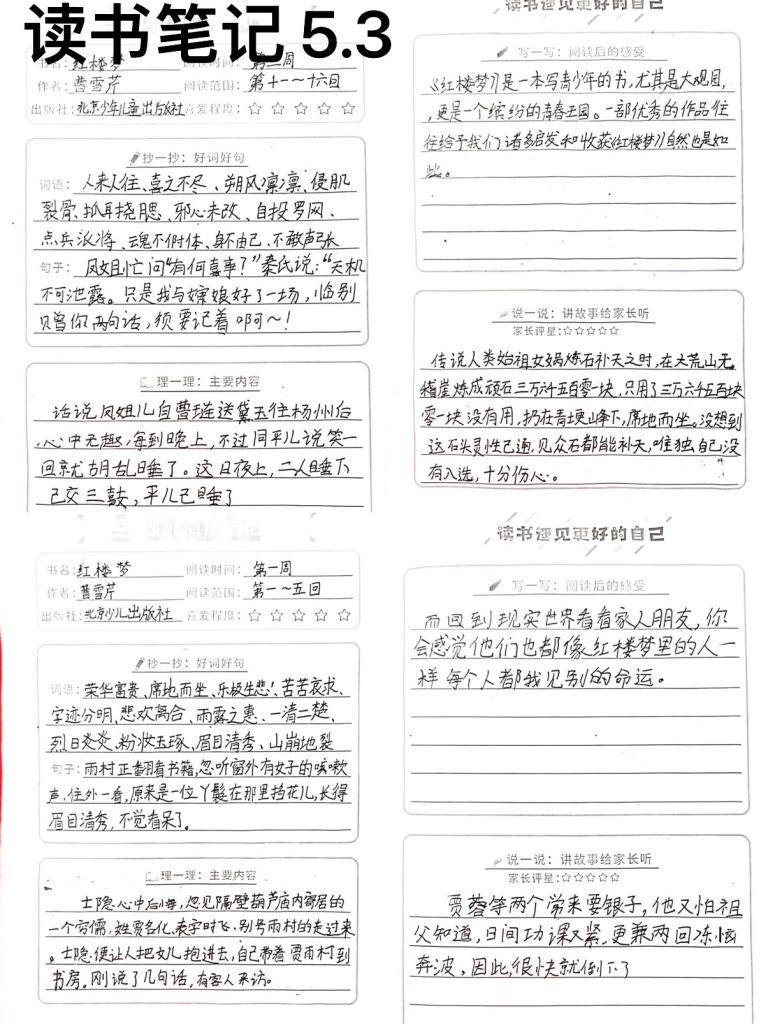 读书笔记 5.3
书名：红楼梦 阅读时间：第二周
作者：曹雪芹 阅读范围：第十一～十六回
出版社：北京少年儿童出版社 喜爱程度：☆☆☆☆☆
抄一抄：好词好句
词语：人来人往、喜之不尽、朔风凛凛、侵肌
裂骨、抓耳挠腮、邪心未改、自投罗网、
点兵派将、魂不附体、身不由己、不敢声张
句子：凤姐忙问"有何喜事？"秦氏说："天机
不可泄露。只是我与婶娘好了一场，临别
赠你两句话，须要记着啊～！
理一理：主要内容
话说凤姐儿自曹琏送黛玉往杨州后
，心中无趣，每到晚上，不过同平儿说笑一
回就胡乱睡了。这日夜上，二人睡下
己交三鼓，平儿已睡了
读书遇见更好的自己
写一写：阅读后的感受
《红楼梦》是一本写青少年的书，尤其是大观园，
，更是一个缤纷的青春王国。一部优秀的作品往
往给予我们诸多启发和收获《红楼梦》自然也是如
此。
说一说：讲故事给家长听
家长评星：☆☆☆☆☆
传说人类始祖女娲炼石补天之时，在大荒山无
稽崖炼成顽石三万六千五百零一块，只用了三万六千五百块
零一块没有用，扔在青埂峰下，席地而坐。没想到
这石头灵性已通，见众石都能补天，唯独自己没
有入选，十分伤心。
书名：红楼梦 阅读时间：第一周
作者：曹雪芹 阅读范围：第一～五回
出版社：北京少儿出版社 喜爱程度：☆☆☆☆☆
抄一抄：好词好句
词语：荣华富贵、席地而坐、乐极生悲！、苦苦哀求、
字迹分明、悲欢离合、雨露之惠、一清二楚、
烈日炎炎、粉妆玉琢、眉目清秀、山崩地裂
句子：雨村正翻着书籍，忽听窗外有女子的咳嗽
声，往外一看，原来是一位丫鬟在那里挡花儿，长得
眉目清秀，不觉看呆了。
理一理：主要内容
士隐心中后悔，忽见隔壁葫芦庙内寄居的
一个穷儒，姓贾名化，表字时飞、别号雨村的走过来
。士隐便让人把女儿抱进去，自己带着贾雨村到
书房。刚说了几句话，有客人来访。
读书遇见更好的自己
写一写：阅读后的感受
而回到现实世界看看家人朋友，你
会感觉他们也都像红楼梦里的人一
样 每个人都我见别的命运。
说一说：讲故事给家长听
家长评星：☆☆☆☆☆
贾蓉等两个常来要银子，他又怕祖
父知道，日间功课又紧，更兼两回冻恼
奔波，因此，很快就倒下了